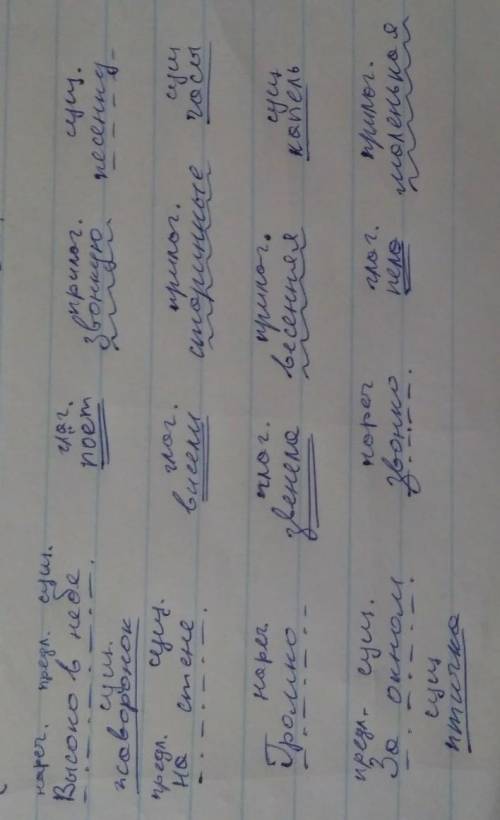 нареч. предл. сущ. глаг. прилаг. сущ.
Высоко в небе поет звонкую песенку
сущ.
жаворонок
предл. сущ. глаг. прилаг. сущ
На стене висели старинные часы
нареч. глаг. прилаг. сущ
Громко звенела весенняя капель
предл. сущ. нареч глаг. прилаг.
За окном звонко пела маленькая
сущ
птичка